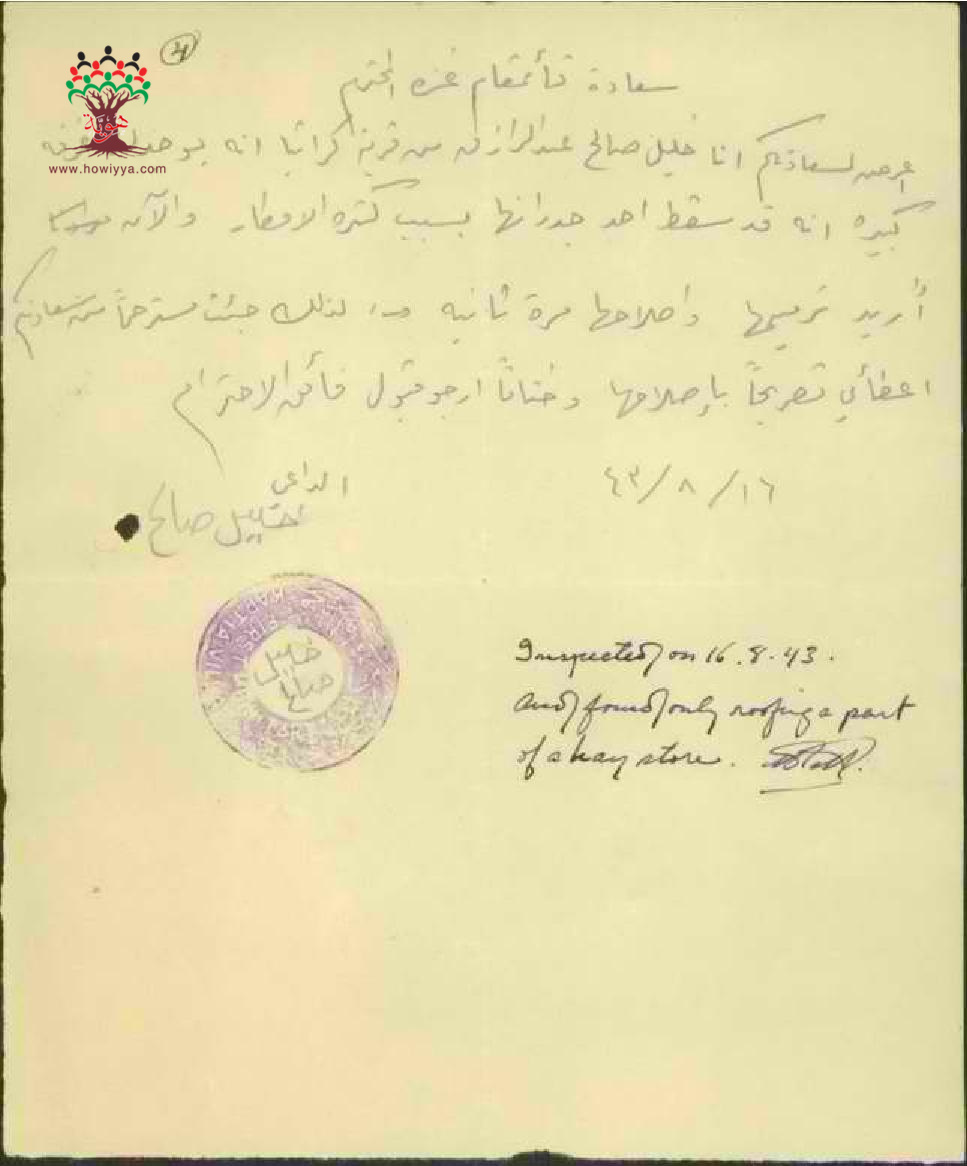 ٣
هوية
www.howiyya.com
سعادة قائمقام غزه المحترم
اعرض لسعادتكم انا خليل صالح عبد الرازق من قرية كراتيا انه يوجد لي غرفه
كبيره انه قد سقط احد جدرانها بسبب كثرة الامطار والآن
أريد ترميمها واصلاحها مرة ثانيه لذلك جئت مسترحماً من سعادتكم
اعطائي تصريحاً بإصلاحها وختاماً ارجو قبول فائق الاحترام
١٦/٨/٤٣
الداعي
خليل صالح
KARTIYA
خليل
صالح
Inspected on 16.8.43.
and found only roofing a part
of a hay store.